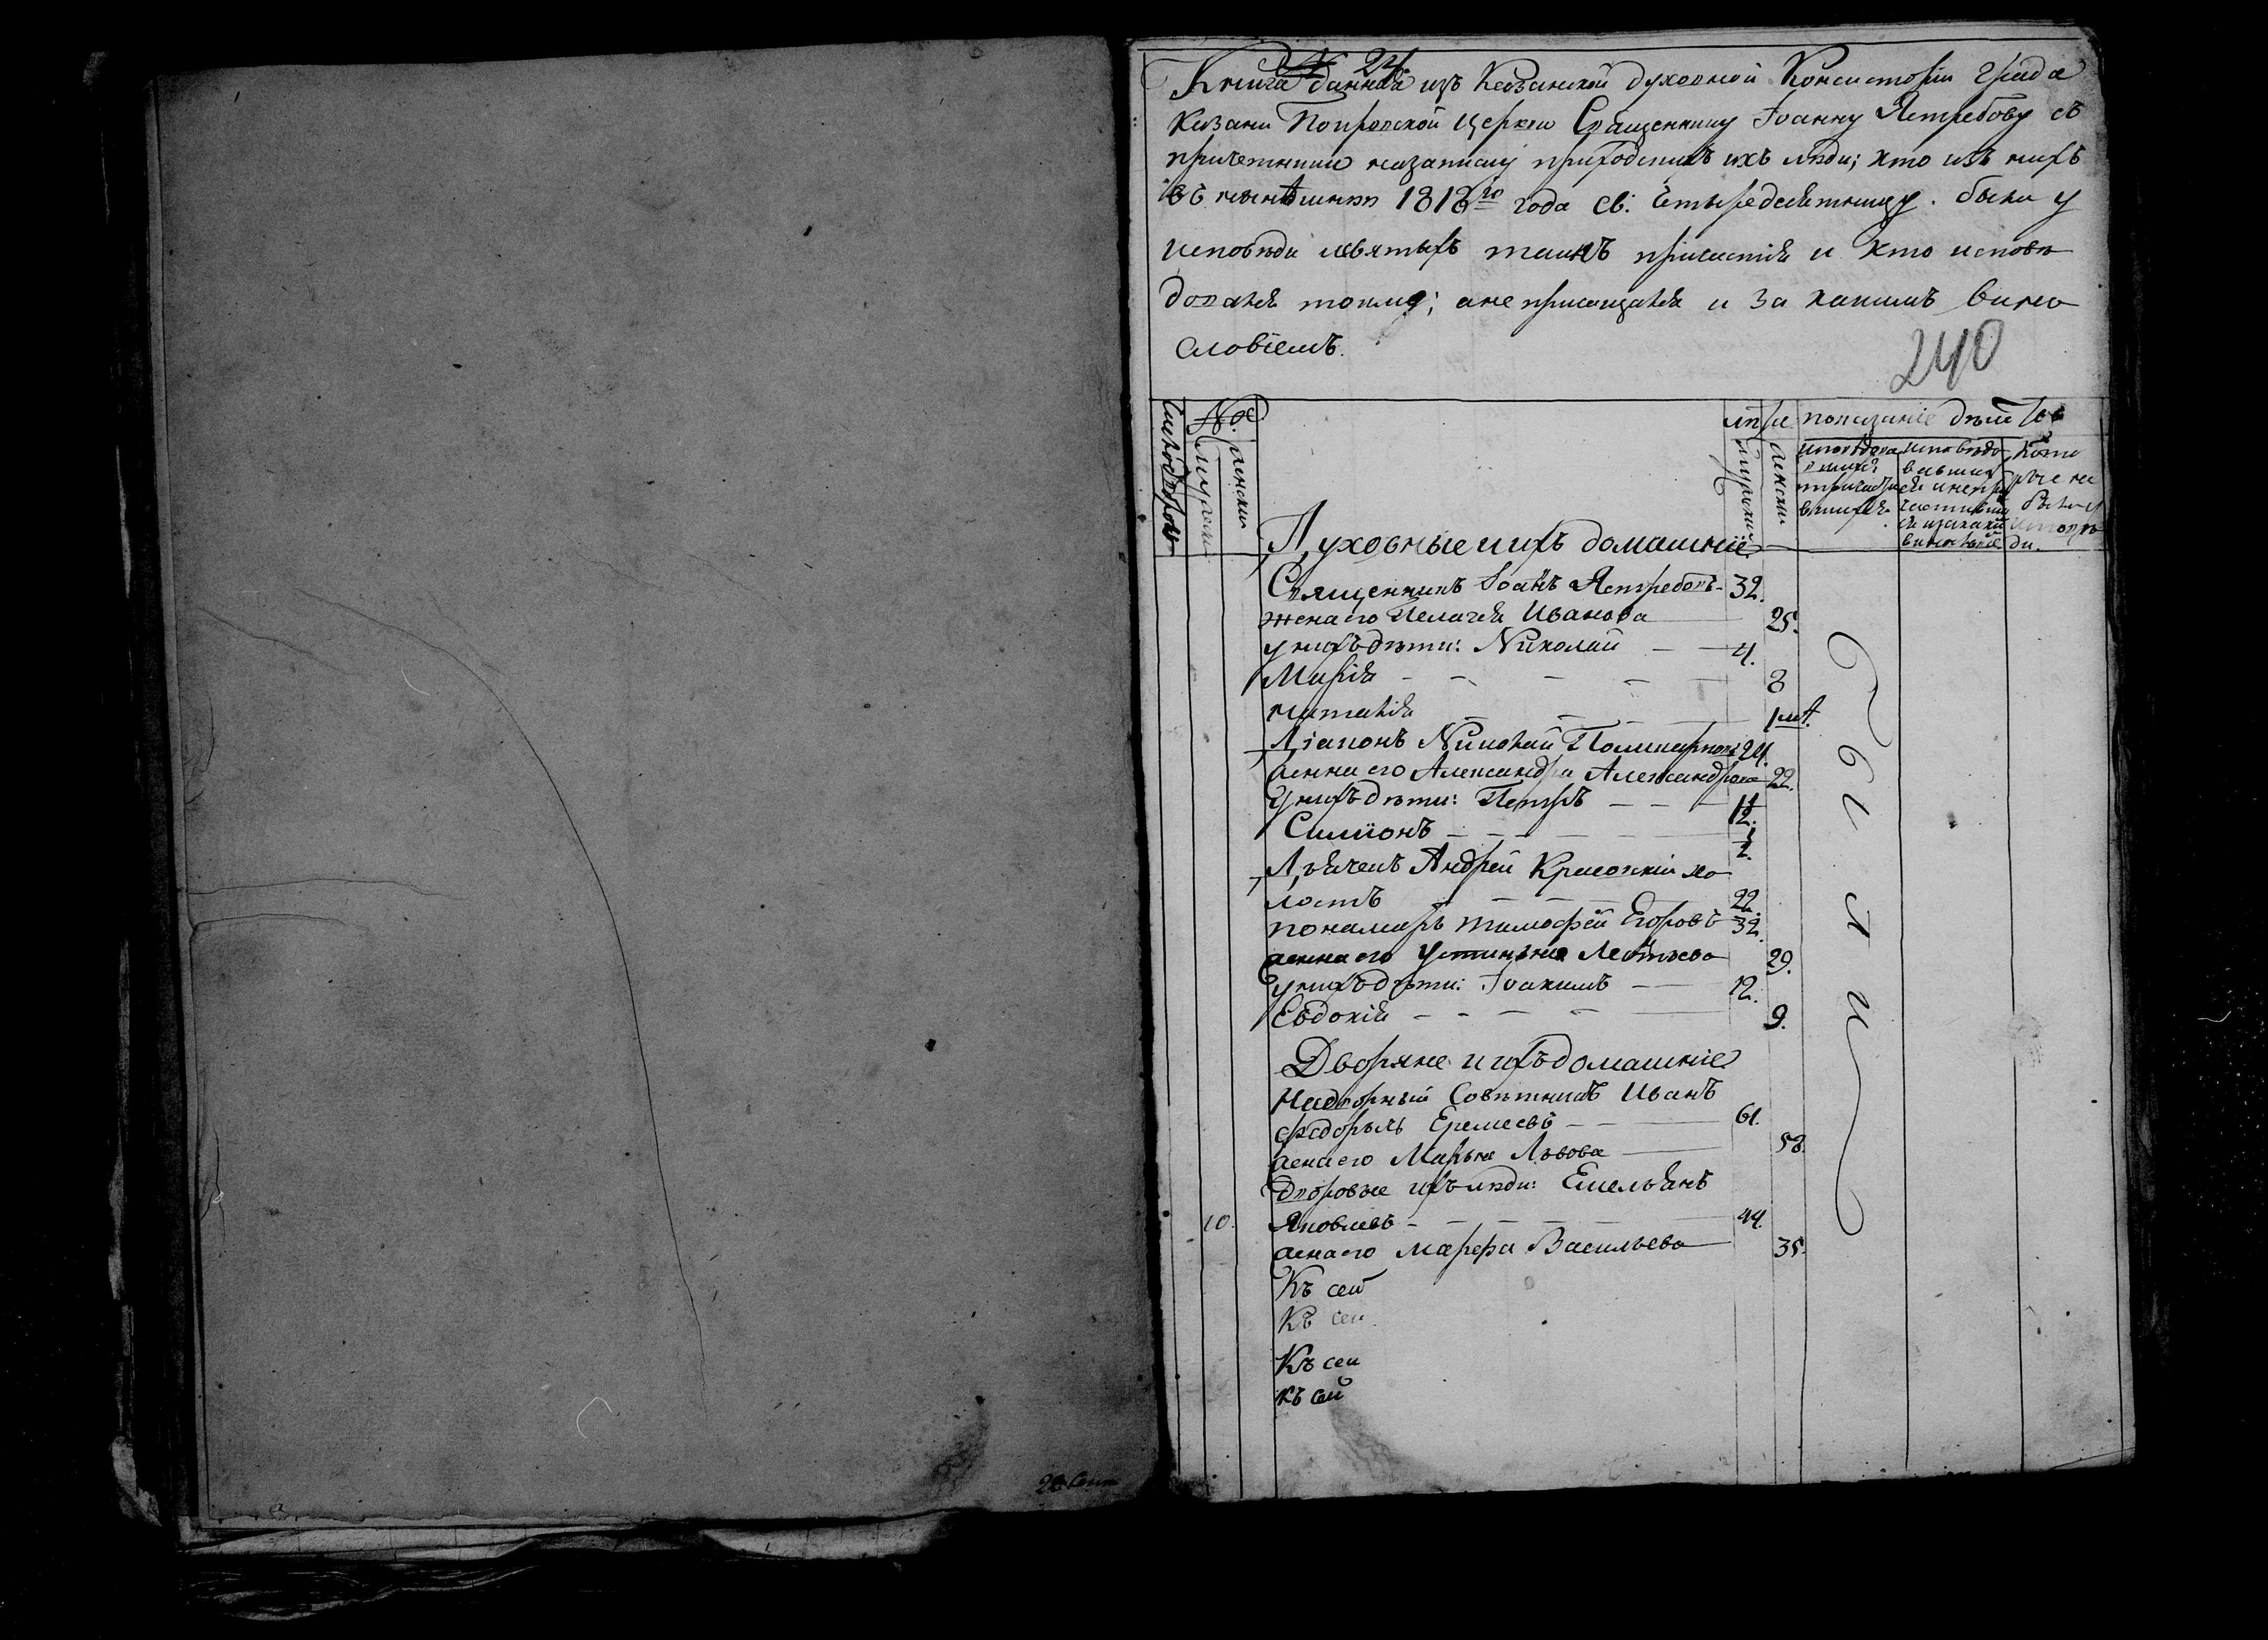 № 24.
Книга данная изъ Казанской духовной Консисторіи града
Казани Покровской церкви Священнику Іоанну Ястребову съ
причетники на записку приходскихъ ихъ люди; кто изъ нихъ
въ нынѣшнем 1818го года св: четыредесятницу. были у
исповѣди и святыхъ таинъ причастія и кто исповѣ
довался токмо; а не причащался и за какимъ вино
словіемъ.
240
Число дворовъ
№е
мужеска
женска
лѣта
мужеска
женска
показаніе дѣйства
исповѣдова
вшихся
и причасти
вшихся
исповѣдо
вавших
ся и не при
частивших
ся и за каким
винословіе
Кото
рые не
были у
исповѣ
ди.
Духовные и ихъ домашніе
Священникъ Іоаннъ Ястребовъ 32.
жена его Пелагея Иванова 25.
у нихъ дѣти: Николай 4.
Марія 3
Наталія 1
Діаконъ Николай Поликарповъ 24.
жена его Александра Александрова 22.
у нихъ дѣти: Петръ
Симіонъ
Дьячекъ Андрей Красовскій хо
лостъ 22.
пономарь Тимофей Егоровъ 32.
жена его Устинья
у нихъ дѣти: Іоакимъ 12.
Евдокія 9.
Дворяне и ихъ домашніе
Надворный Совѣтникъ Иванъ
Федоровъ Еремеевъ 61.
жена его Марья Львова 58.
дворовые ихъ люди: Емельянъ
10. Яковлевъ 44.
жена его Марфа Васильева 35.
Къ сей
Къ сей
Къ сей
къ сей
были